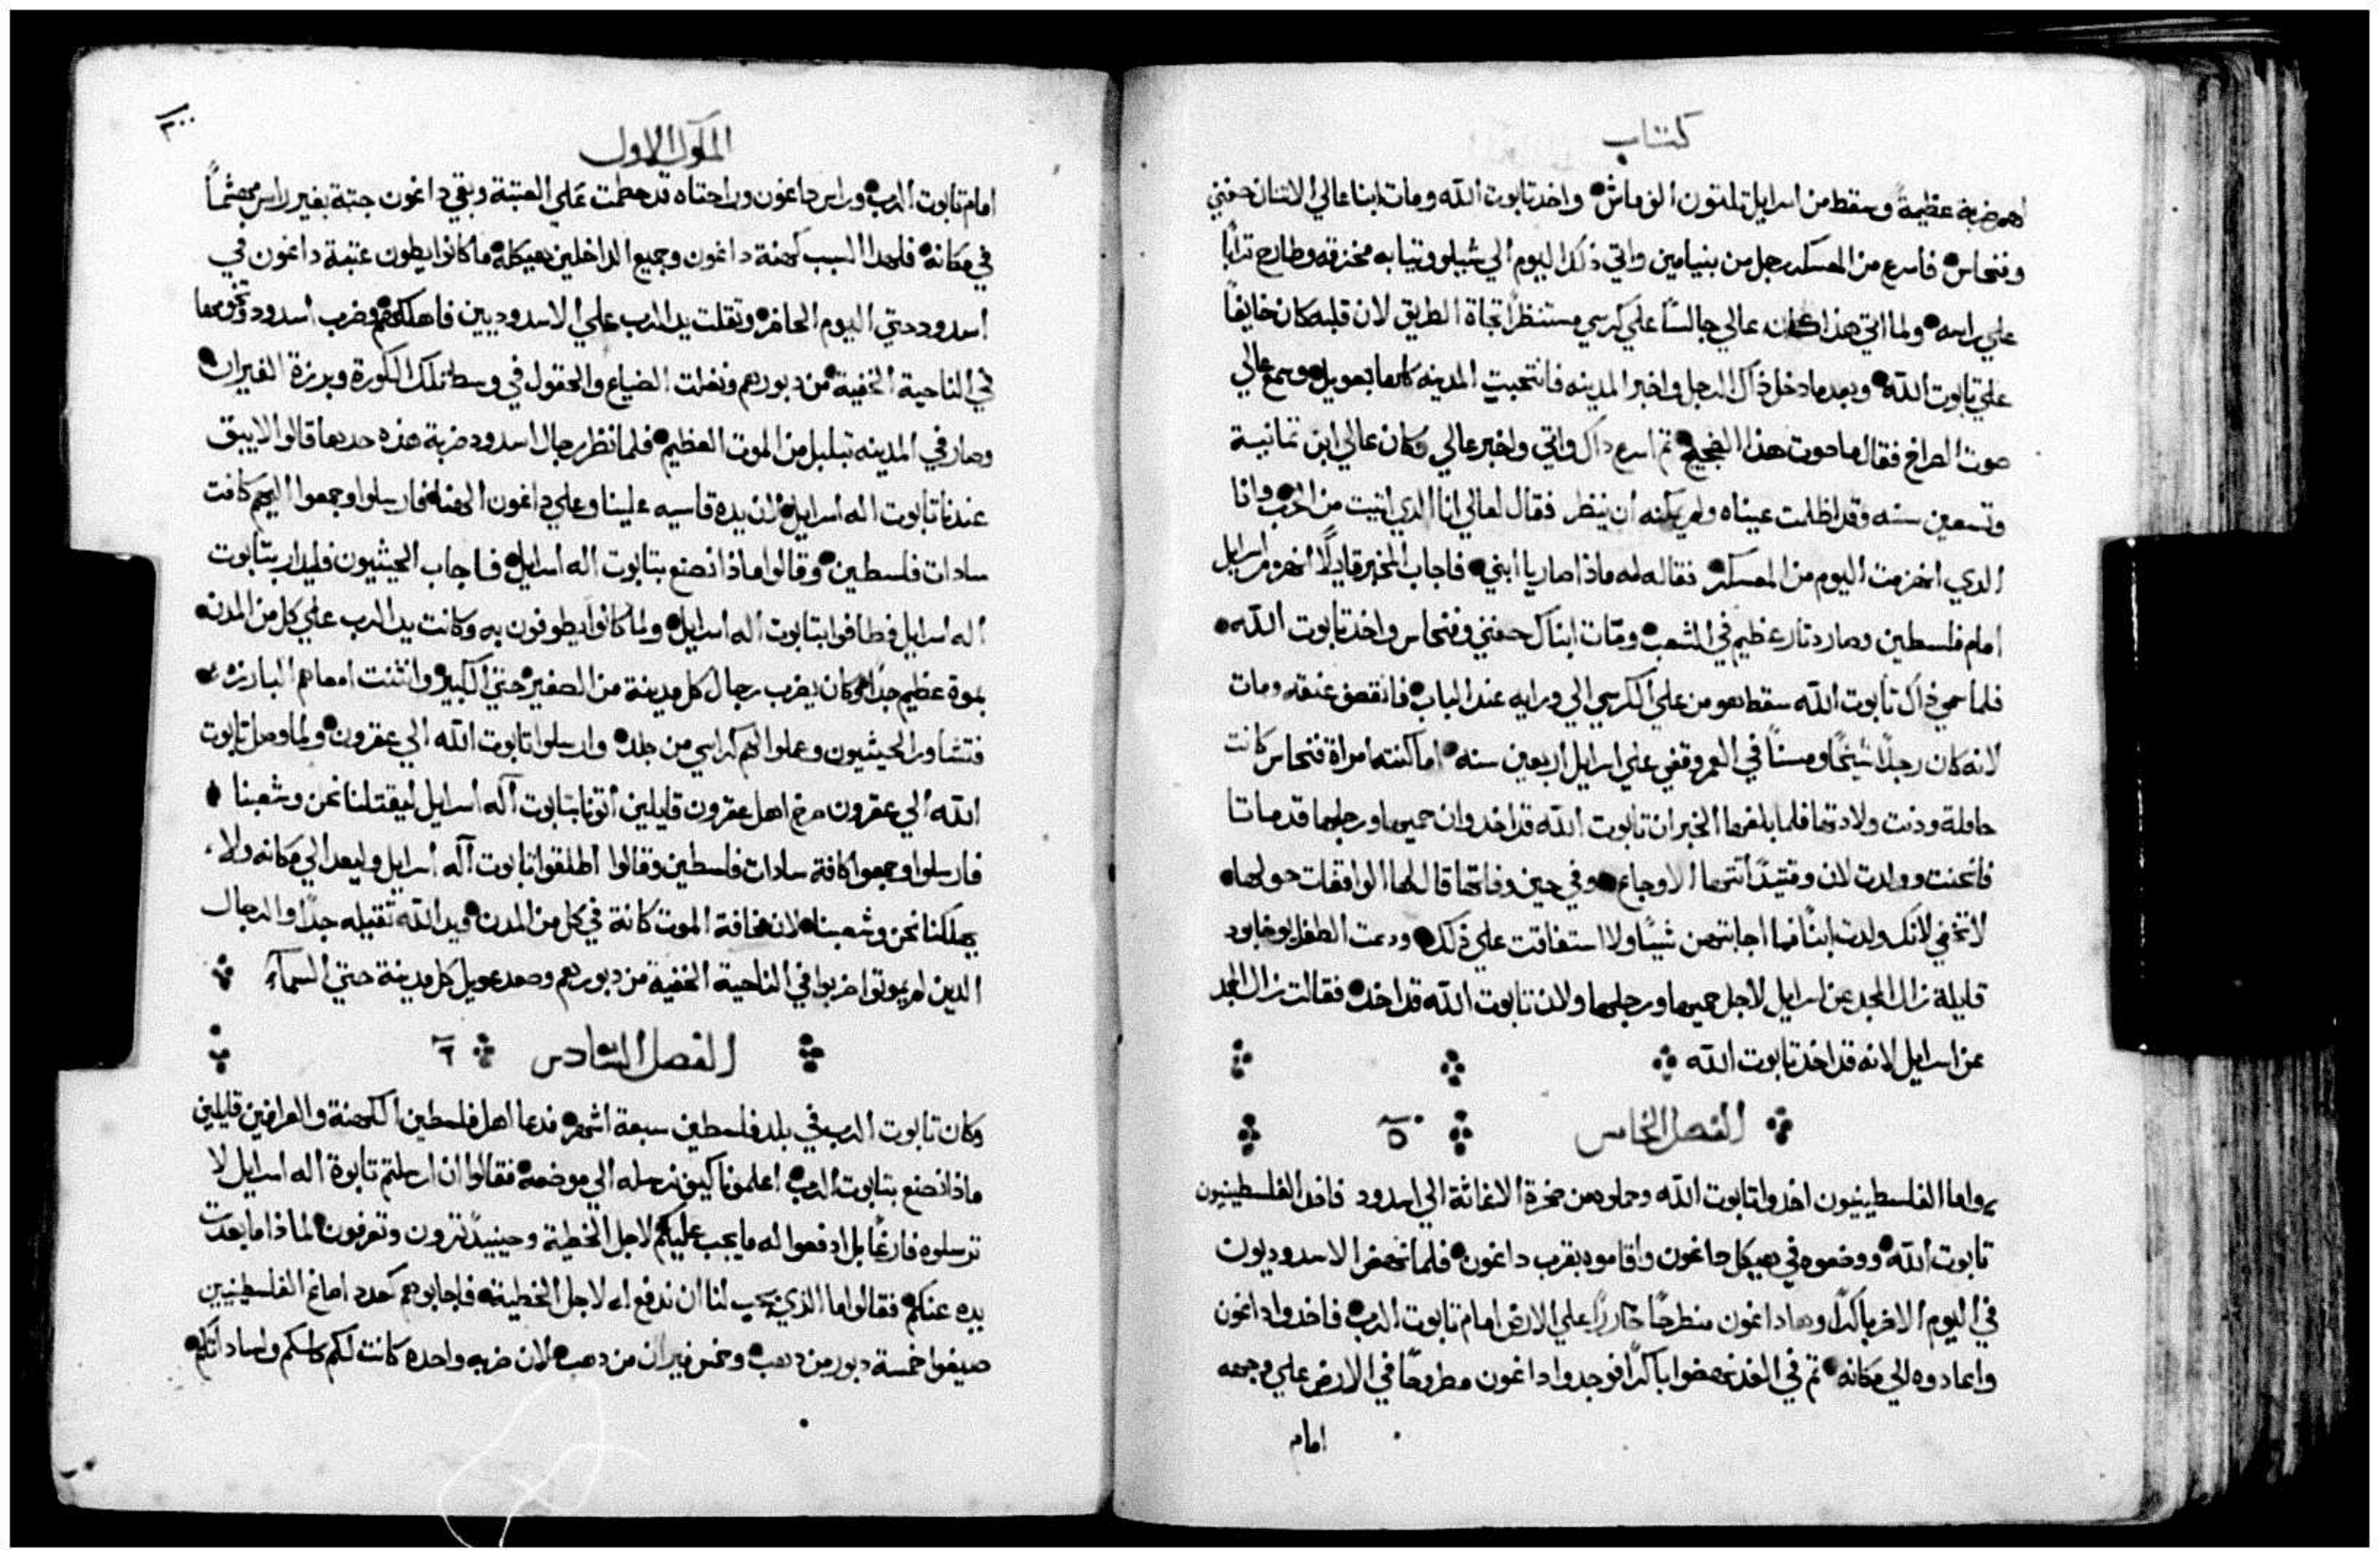 كتاب
اهم ضربة عظيمةً وسقط من اسرايل تلتون الف ماش واخد تابوت الله ومات ابنا عالي الاتنان حفني
وفنحاس فاسرع من العسكر رجل من بنيامين واتي ذلك اليوم الي شيلو وتيابه مخزقه وطارح ترابًا
علي راسه ولما اتي هذا كان عالي جالسًا علي كرسي مستنظرًا تجاة الطريق لان قلبه كان خايفًا
علي تابوت الله وبعد ما دخل ذاك الرجل واخبر المدينه فانتحبت المدينه كلها بعويل وسمع عالي
صوت الصراخ فقال ما صوت هذا الضجيج تم اسرع داك واتي واخبر عالي وكان عالي ابن تمانية
وتسعين سنه وقد اظلمت عيناه ولم يمكنه ان ينظر فقال لعالي انا الدي اتيت من الحرب وانا
الدي انهزمت اليوم من العسكر فقال له ماذا صار يا ابني فاجاب المخبر قايلًا انهزم اسرايل
امام فلسطين وصار دتار عظيم في الشعب ومات ابناك حفني وفنحاس واخد تابوت الله
فلما سمي داك تابوت الله سقط هو من علي الكرسي الي ورايه عند الباب فانقصف عنقه ومات
لانه كان رجلًا شيخًا ومسنًا في العمر وقضي علي اسرايل اربعين سنه اما كنته امراة فنحاس كانت
حاملة ودنت ولادتها فلما بلغها الخبر ان تابوت الله قد اخد وان حميها ورجلها قد ماتا
فانحنت وولدت لان وقتيدًا اتتها الاوجاع وفي حين وفاتها قال لها الواقفات حولها
لا تخفي لانك ولدت ابنًا فما اجابتهن شيًا ولا استفاقت علي ذلك ودعت الطفل يوخابود
قايلة زال المجد عن اسرايل لاجل حميها ورجلها ولان تابوت الله قد اخد فقالت زال المجد
عن اسرايل لانه قد اخد تابوت الله
الفصل الخامس ٥
واما الفلسطينيون اخدوا تابوت الله وحملوه من صخرة الاغاثة الي اسدود فاخد الفلسطينيون
تابوت الله ووضعوه في هيكل داغون واقاموه بقرب داغون فلما نهض الاسدوديون
في اليوم الاخر باكرًا وها داغون منطرحًا خاررًا علي الارض امام تابوت الرب فاخدوا داغون
واعادوه الي مكانه تم في الغد نهضوا باكرًا فوجدوا داغون مطروحًا في الارض علي وجهه
امام
الملوك الاول
امام تابوت الرب وراس داغون وراحتاه قد حطمت علي العتبة وبقي داغون جتة بغير راس مهشمًا
في مكانه فلهدا السبب كهنة داغون وجميع الداخلين هيكله ما كانوا يطون عتبة داغون في
اسدود حتي اليوم الحاضر وتقلت يد الرب علي الاسدوديين فاهلكهم وضرب اسدود وتخومها
في الناحية الخفية من دبورهم ونغلت الضياع والحقول في وسط تلك الكورة وبرزة الفيران
وصار في المدينه تبلبل من الموت العظيم فلما نظر رجال اسدود ضربة هذه حدها قالوا لا يبق
عندنا تابوت اله اسرايل لان يده قاسيه علينا وعلي داغون الهنا فارسلوا وجمعوا اليهم كافت
سادات فلسطين وقالوا ماذا نصنع بتابوت اله اسرايل فاجاب الجيثيون فليدار بتابوت
اله اسرايل فطافوا بتابوت اله اسرايل ولما كانوا يطوفون به وكانت يد الرب علي كل من المدن
بموة عظيم جدًا وكان يضرب رجال كل مدينة من الصغير حتي الكبير وانتنت امعاهم البارزه
فتشاور الجيثيون وعملوا لهم كراسي من جلد وارسلوا تابوت الله الي عقرون ولما وصل تابوت
الله الي عقرون صرخ اهل عقرون قايلين اتونا بتابوت اله اسرايل ليقتلنا نحن وشعبنا
فارسلوا وجمعوا كافة سادات فلسطين وقالوا اطلقوا تابوت اله اسرايل وليعد الي مكانه ولا
يهلكنا نحن وشعبنا لان مخافة الموت كانة في كل من المدن ويد الله تقيله جدًا والرجال
الدين لم يموتوا ضربوا في الناحية الخفية من دبورهم وصعد عويل كل مدينة حتي السمآء
الفصل السادس ٦
وكان تابوت الرب في بلد فلسطين سبعة اشهر فدعا اهل فلسطين الكهنة والعرافين قايلين
ماذا نصنع بتابوت الرب اعلمونا كيف نرسله الي موضعه فقالوا ان ارسلتم تابوة اله اسرايل لا
ترسلوه فارغًا بل ادفعوا له ما يجب عليكم لاجل الخطية وحينيدً تبرون وتعرفون لماذا ما بعدت
يده عنكم فقالوا ما الذي يجب لنا ان ندفع له لاجل الخطيه فاجابوهم كعدد اماغ الفلسطينيين
صيغوا خمسة دبور من دهب وخمس فيران من دهب لان ضربه واحده كانت لكم كلكم ولساداتكم